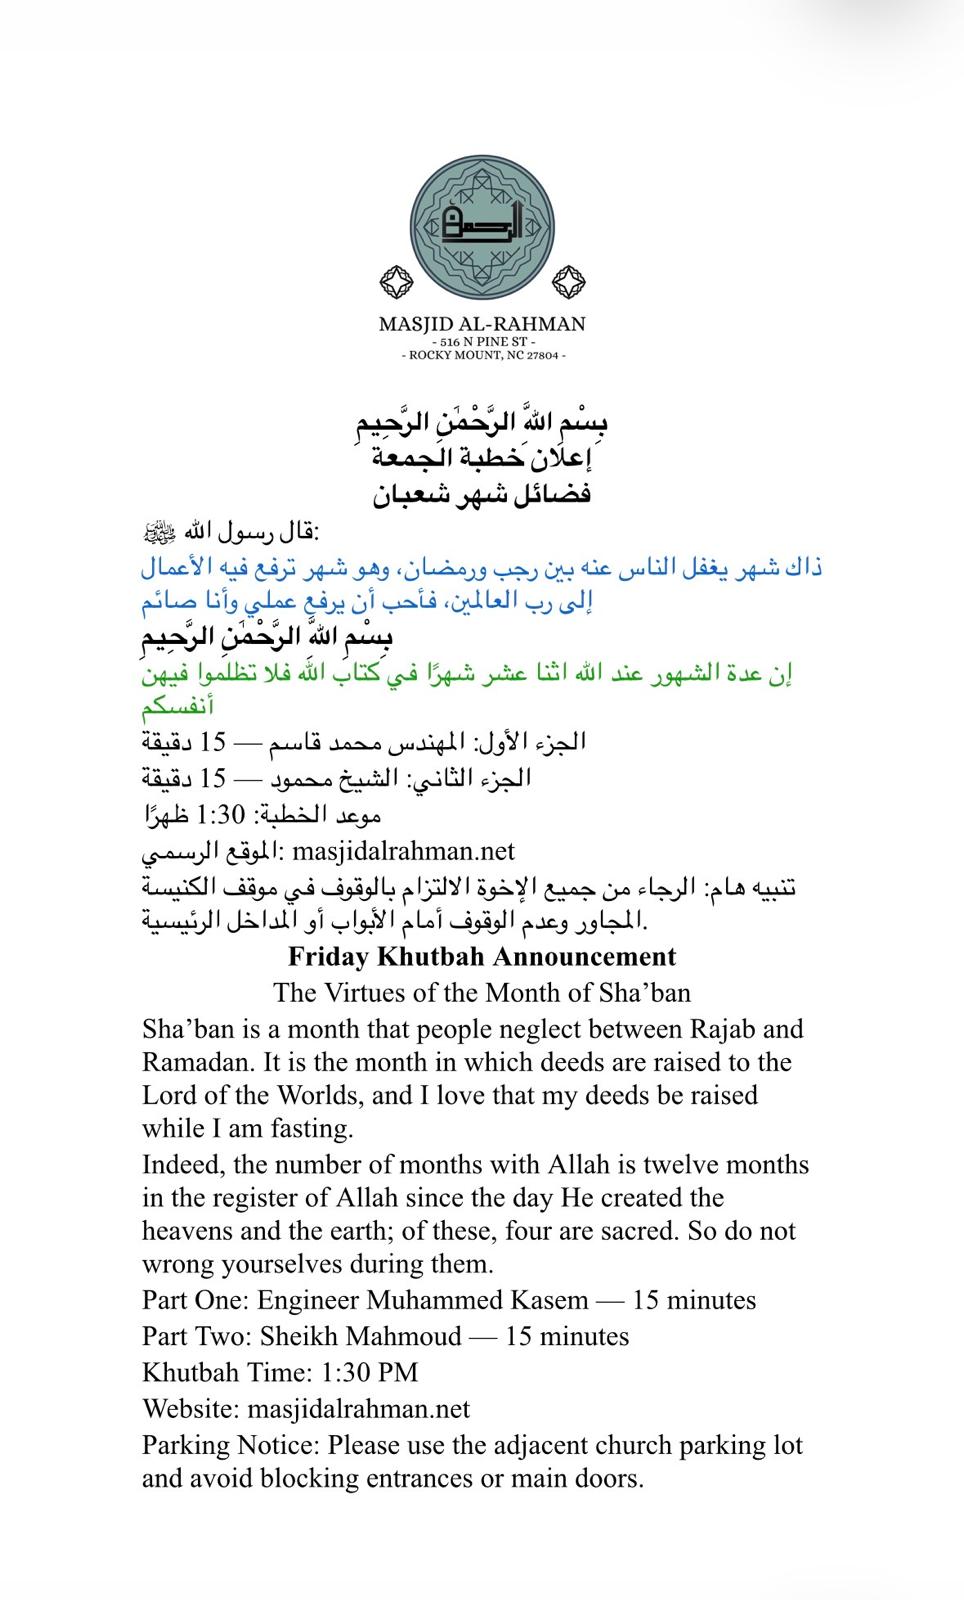 الرحمن
MASJID AL-RAHMAN
- 516 N PINE ST -
- ROCKY MOUNT, NC 27804 -
بِسْمِ اللَّهِ الرَّحْمَٰنِ الرَّحِيمِ
إعلان خطبة الجمعة
فضائل شهر شعبان
قال رسول الله ﷺ:
ذاك شهر يغفل الناس عنه بين رجب ورمضان، وهو شهر ترفع فيه الأعمال
إلى رب العالمين، فأحب أن يرفع عملي وأنا صائم
بِسْمِ اللَّهِ الرَّحْمَٰنِ الرَّحِيمِ
إن عدة الشهور عند الله اثنا عشر شهرًا في كتاب الله فلا تظلموا فيهن
أنفسكم
الجزء الأول: المهندس محمد قاسم — 15 دقيقة
الجزء الثاني: الشيخ محمود — 15 دقيقة
موعد الخطبة: 1:30 ظهرًا
الموقع الرسمي: masjidalrahman.net
تنبيه هام: الرجاء من جميع الإخوة الالتزام بالوقوف في موقف الكنيسة
المجاور وعدم الوقوف أمام الأبواب أو المداخل الرئيسية.
Friday Khutbah Announcement
The Virtues of the Month of Sha’ban
Sha’ban is a month that people neglect between Rajab and
Ramadan. It is the month in which deeds are raised to the
Lord of the Worlds, and I love that my deeds be raised
while I am fasting.
Indeed, the number of months with Allah is twelve months
in the register of Allah since the day He created the
heavens and the earth; of these, four are sacred. So do not
wrong yourselves during them.
Part One: Engineer Muhammed Kasem — 15 minutes
Part Two: Sheikh Mahmoud — 15 minutes
Khutbah Time: 1:30 PM
Website: masjidalrahman.net
Parking Notice: Please use the adjacent church parking lot
and avoid blocking entrances or main doors.